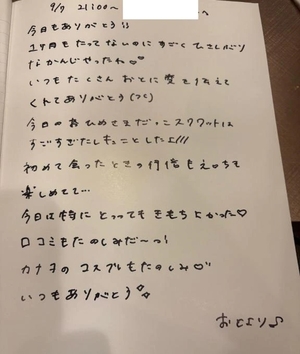 9/7 21:00~ へ
今日もありがとう!!
1ヶ月もたってないのにすごくひさしぶり
なかんじやったね♡♡
いつもたくさん おとに愛を伝えて
くれてありがとう
今日の おひめさまだっこスクワットは
すごすぎたしキュンとしたよ///
初めて会ったときの何倍もえっちで
楽しめてて…
今日は特に とってもきもちよかった♡
口コミもたのしみだ〜っ!
カナヲのコスプレもたのしみ♡
いつもありがとう
おとより♪